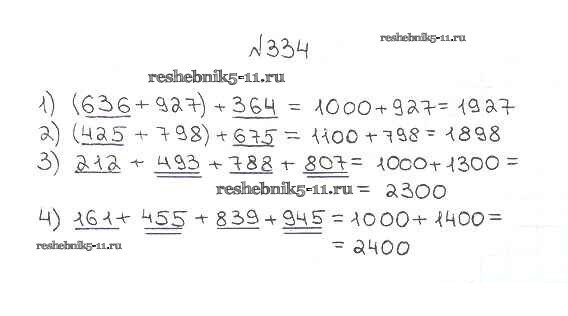 №334
reshebnik5-11.ru
reshebnik5-11.ru
1) (636 + 927) + 364 = 1000 + 927 = 1927
2) (425 + 798) + 675 = 1100 + 798 = 1898
3) 212 + 493 + 788 + 807 = 1000 + 1300 =
reshebnik5-11.ru = 2300
4) 161 + 455 + 839 + 945 = 1000 + 1400 =
reshebnik5-11.ru
= 2400